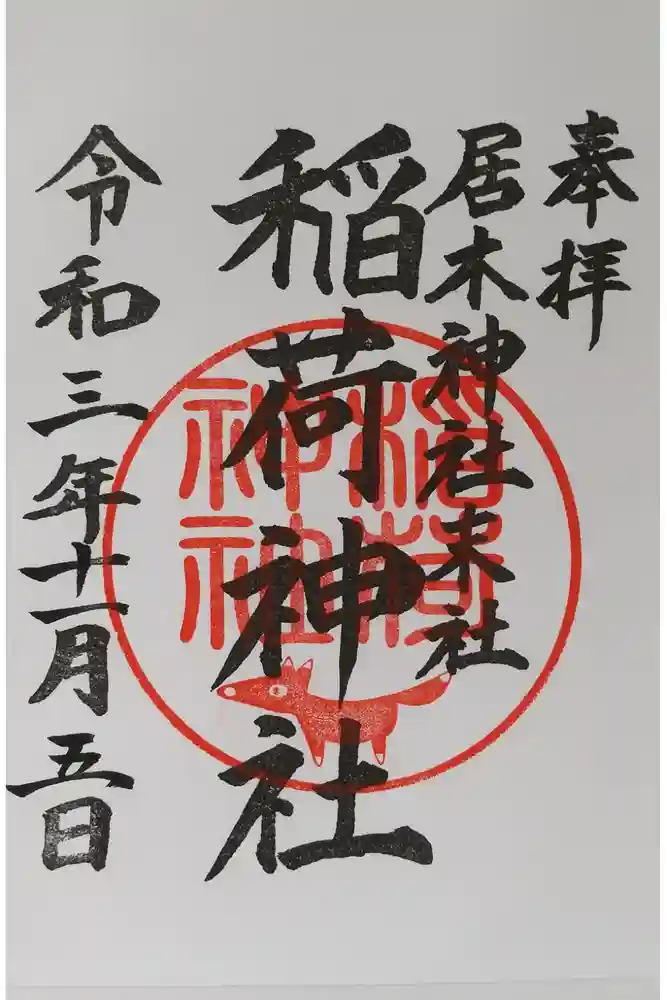 奉拝
居木神社末社
稲荷神社
稲荷
神社
令和三年十一月五日